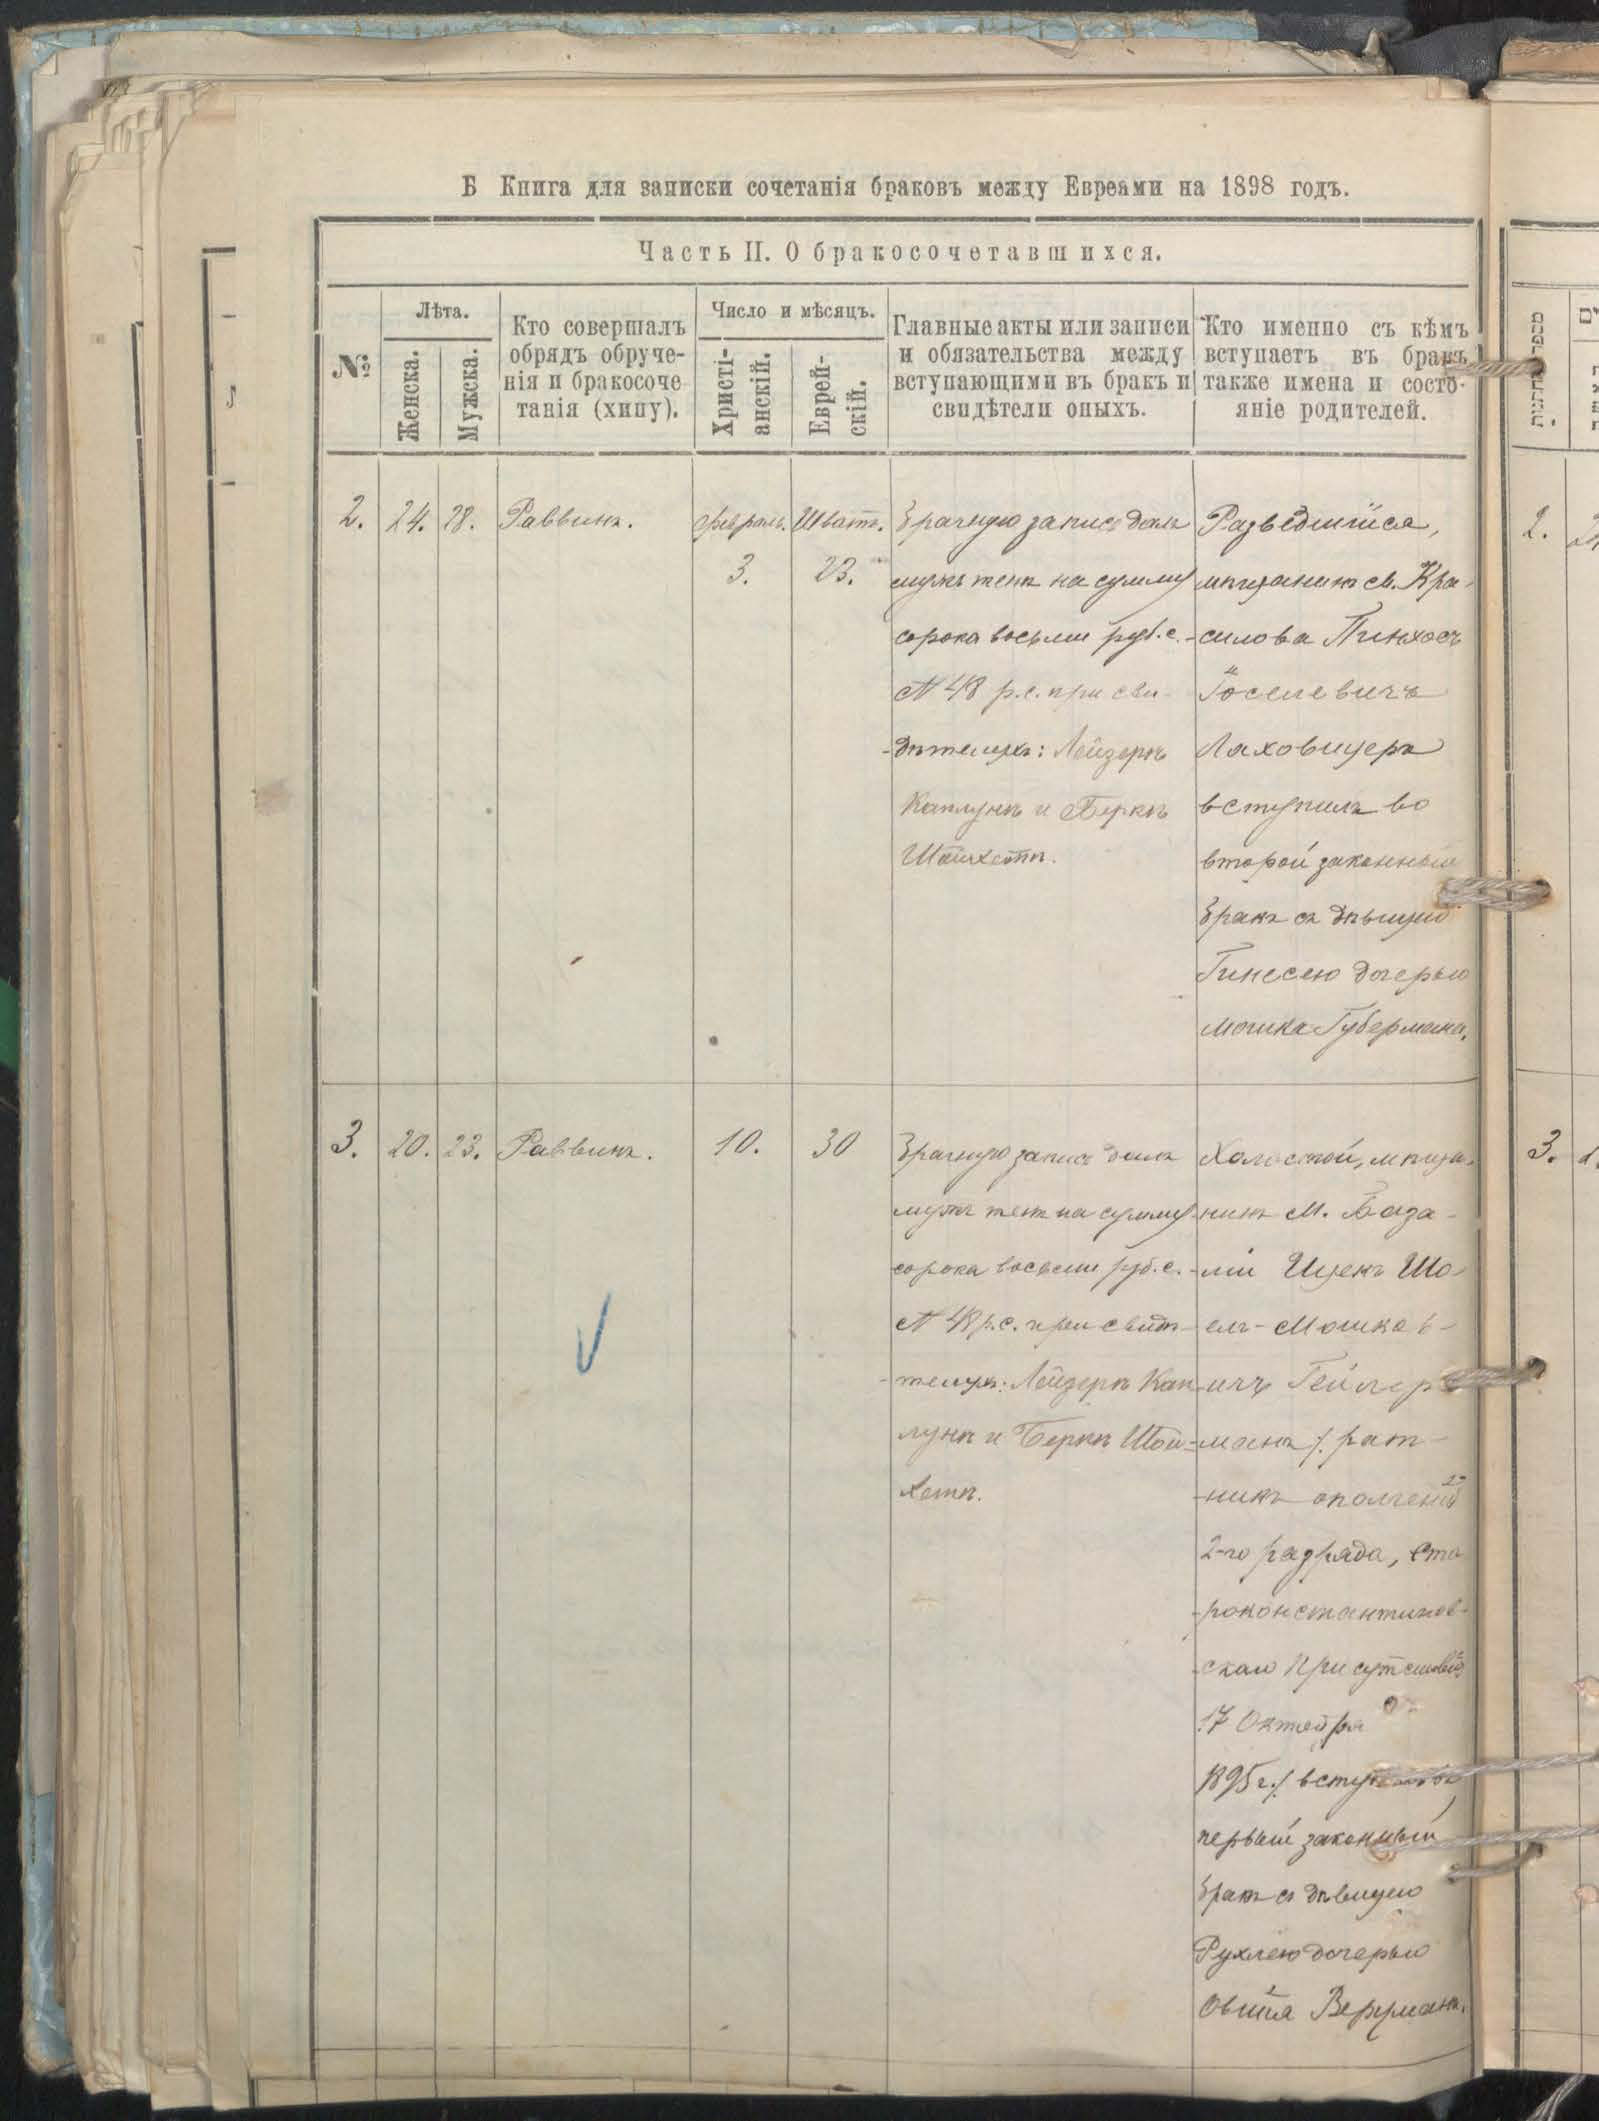 Б Книга для записки сочетанія браковъ между Евреами на 1898 годъ.
Часть II. О бракосочетавшихся.
№
Лѣта.
Женска.
Мужска.
Кто совершалъ
обрядъ обруче-
нія и бракосоче
танія (хипу).
Число и мѣсяцъ.
Христі-
анскій.
Еврей-
скій.
Главные акты или записи
и обязательства между
вступающими въ бракъ и
свидѣтели оныхъ.
Кто именно съ кѣмъ
вступаетъ въ бракъ
также имена и состо-
яніе родителей.
2.
24.
28.
Раввинъ.
Февраль.
3.
Шватъ.
23.
Брачную запись далъ
мужъ женѣ на сумму
сорока восьми руб. с.
№ 48 р. с. при сви-
-дѣтеляхъ: Лейзеръ
Каплунъ и Беркъ
Шойхетъ.
Разведшійся,
мѣщанинъ м. Кра-
силова Пинхосъ
Іоселевичъ
Ляховицеръ
вступилъ во
второй законный
бракъ съ дѣвицею
Гинесею дочерью
Мошка Губермана.
3.
20.
23.
Раввинъ.
10.
30
Брачную запись далъ
мужъ женѣ на сумму
сорока восьми руб. с.
№ 48 р. с. при свидѣ-
-теляхъ: Лейзеръ Кап-
лунъ и Беркъ Шой-
хетъ.
Холостой, мѣща-
нинъ м. База-
ліи Ицекъ Шо-
елъ-Мошков-
ичъ Гейлер
манъ /: рат-
-никъ ополченія
2-го разряда, Ста
-роконстантинов-
-скаго Присутствія
17 Октября
1895 г. :/ вступилъ въ
первый законный
бракъ съ дѣвицею
Рухлею дочерью
Овшія Верцманъ.
2.
3.